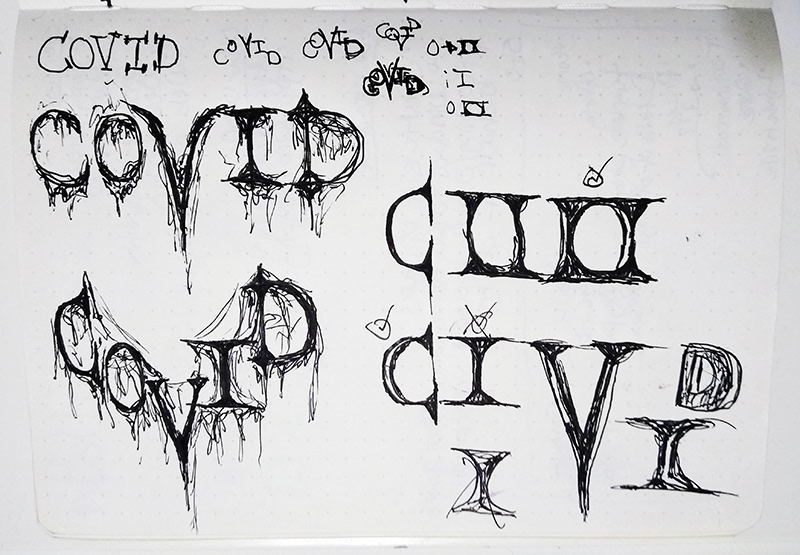 COVID COVID COVID COVID
COVID
COVID
C
COVID
C I V D
I
I